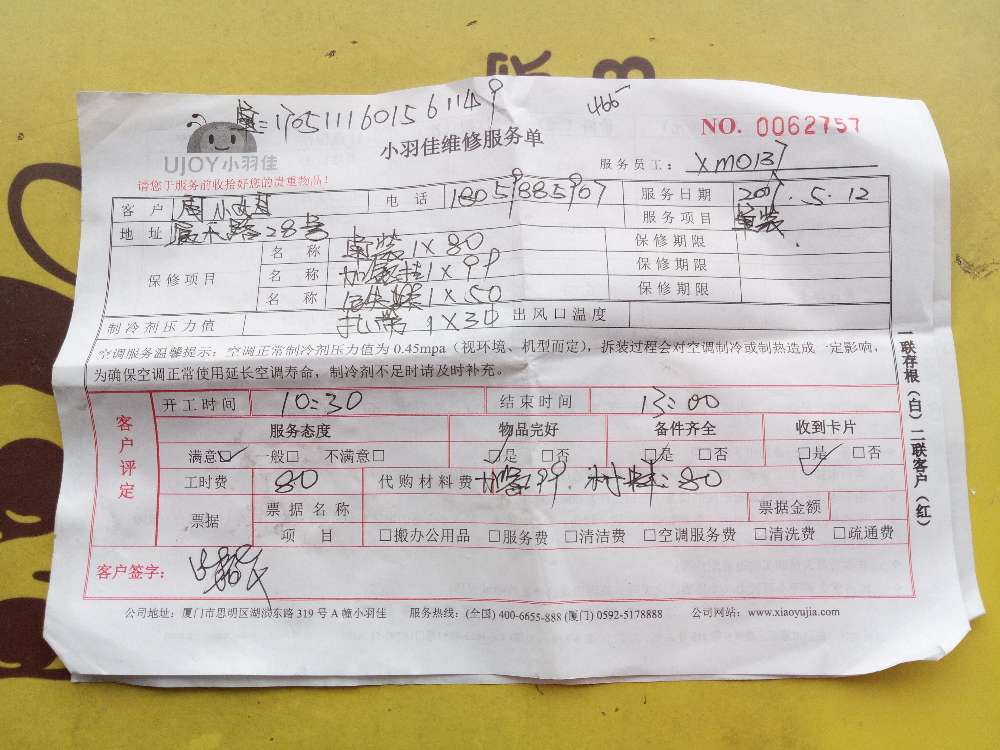 1705111601561149
466
小羽佳维修服务单
NO. 0062757
UJOY小羽佳
服务员工： XM0137
请您于服务前收拾好您的贵重物品！
客 户 电 话 18059885907 服务日期 2017.5.12
地 址 28号 服务项目
保修项目 名 称 1X80 保修期限
名 称 1X 保修期限
名 称 1X50 保修期限
制冷剂压力值 扎带 1X30 出风口温度
空调服务温馨提示：空调正常制冷剂压力值为 0.45mpa（视环境、机型而定），拆装过程会对空调制冷或制热造成一定影响，
为确保空调正常使用延长空调寿命，制冷剂不足时请及时补充。
客户评定
开工时间 10:30 结束时间 13:00
服务态度 物品完好 备件齐全 收到卡片
满意☑ 一般□ 不满意□ ☑是 □否 ☑是 □否 ☑是 □否
工时费 80 代购材料费 材料:80
票据 票据名称 票据金额
项 目 □搬办公用品 □服务费 □清洁费 □空调服务费 □清洗费 □疏通费
客户签字：
一联存根（白）二联客户（红）
公司地址：厦门市思明区湖滨东路 319 号 A 幢小羽佳 服务热线：(全国) 400-6655-888 (厦门) 0592-5178888 公司网站：www.xiaoyujia.com